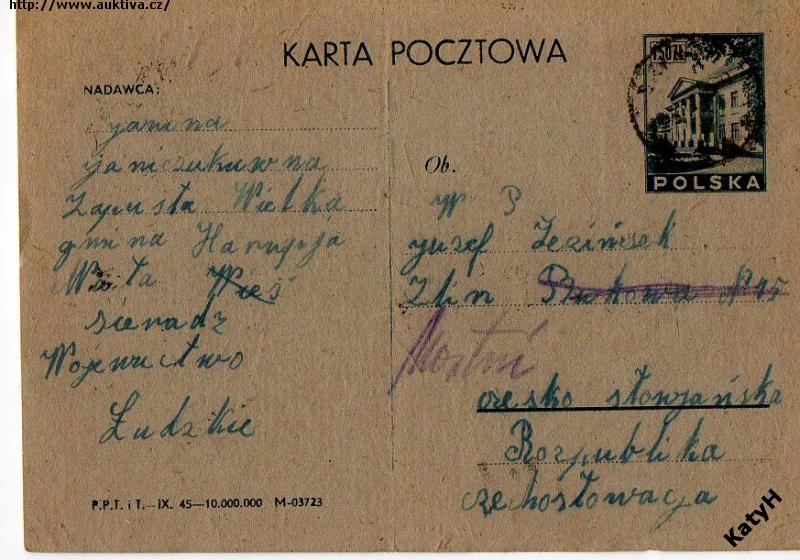 http://www.auktiva.cz/
KARTA POCZTOWA
150 ZŁ
POLSKA
NADAWCA:
yanina
yaniczukuwna
Zapusta Wielka
gmina Harupja
Wieś
sieradz
Wojewuctwo
Łudzkie
Ob.
W P
yuzef
Zlin N 15
Mostní
czesko słowjańska
Rozpublika
czehosłowacja
P.P.T. i T.—IX. 45—10.000.000 M-03723
KatyH